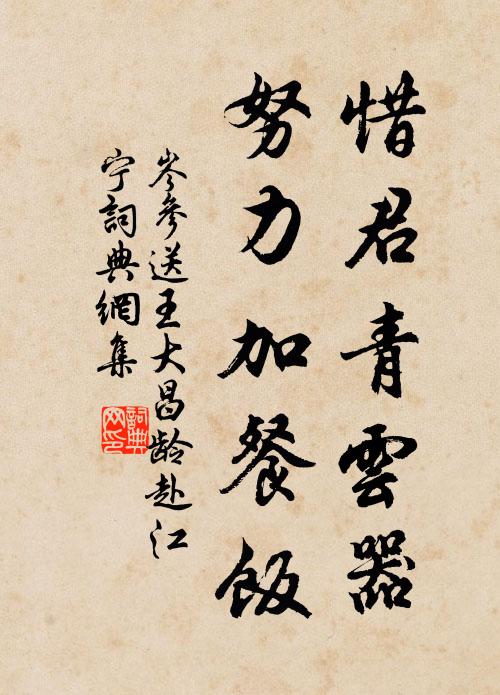 惜君青雲器
努力加餐飯
岑參送王大昌龄赴江
宁詞典網集
詞典网印